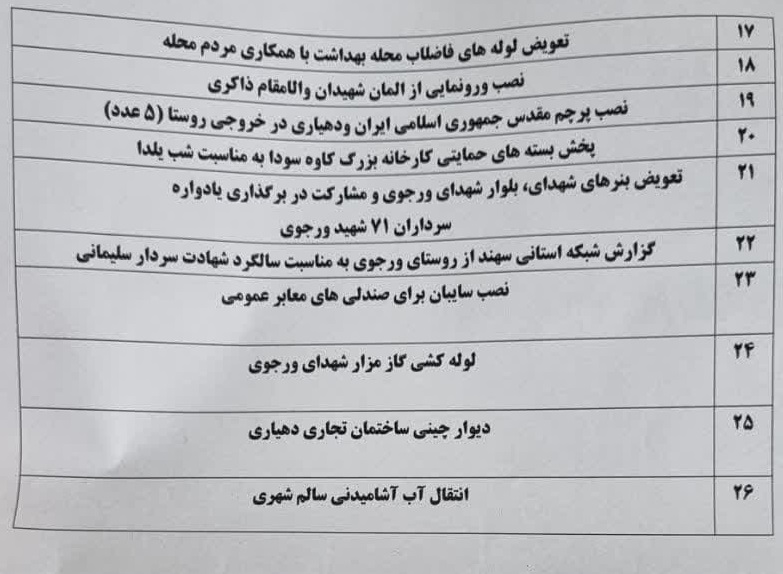 ۱۷ تعویض لوله های فاضلاب محله بهداشت با همکاری مردم محله
۱۸ نصب ورونمایی از المان شهیدان والامقام ذاکری
۱۹ نصب پرچم مقدس جمهوری اسلامی ایران ودهیاری در خروجی روستا (۵ عدد)
۲۰ پخش بسته های حمایتی کارخانه بزرگ کاوه سودا به مناسبت شب یلدا
۲۱ تعویض بنرهای شهدای، بلوار شهدای ورجوی و مشارکت در برگذاری یادواره
سرداران ۷۱ شهید ورجوی
۲۲ گزارش شبکه استانی سهند از روستای ورجوی به مناسبت سالگرد شهادت سردار سلیمانی
۲۳ نصب سایبان برای صندلی های معابر عمومی
۲۴ لوله کشی گاز مزار شهدای ورجوی
۲۵ دیوار چینی ساختمان تجاری دهیاری
۲۶ انتقال آب آشامیدنی سالم شهری